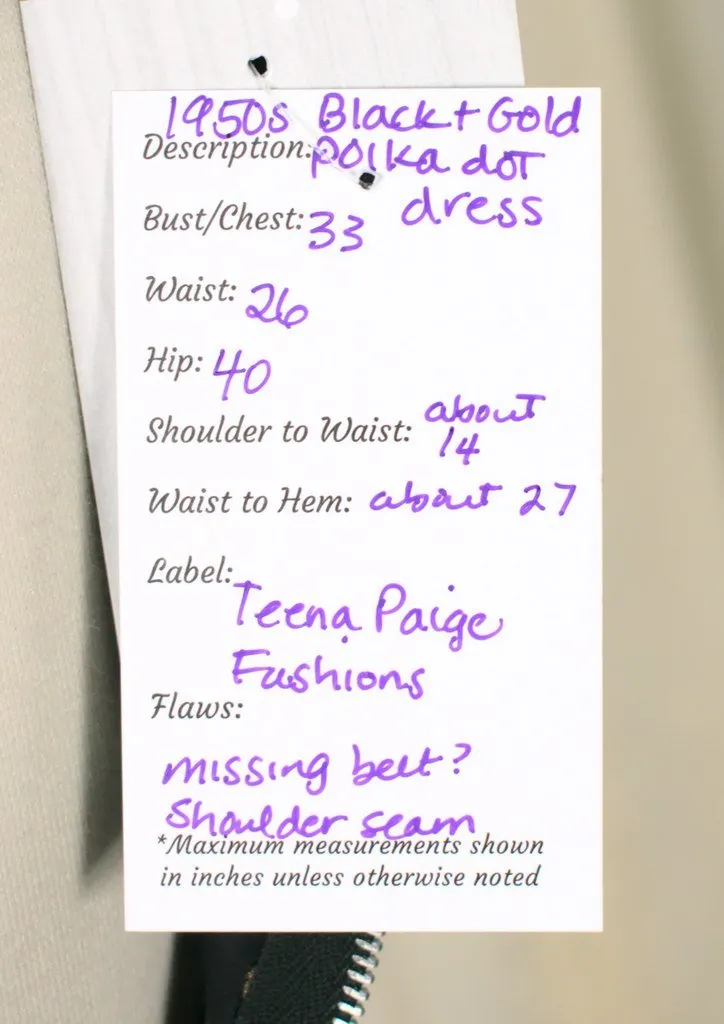 1950s Black + Gold
Description: polka dot
dress
Bust/Chest: 33
Waist: 26
Hip: 40
Shoulder to Waist: about
14
Waist to Hem: about 27
Label:
Teena Paige
Fashions
Flaws:
missing belt?
Shoulder seam
*Maximum measurements shown
in inches unless otherwise noted